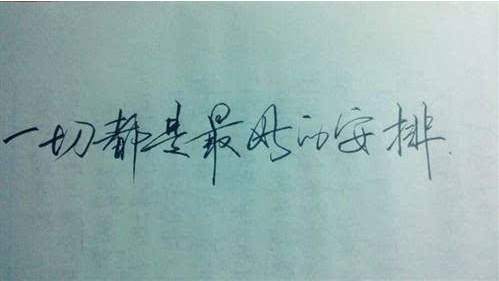 一切都是最好的安排.